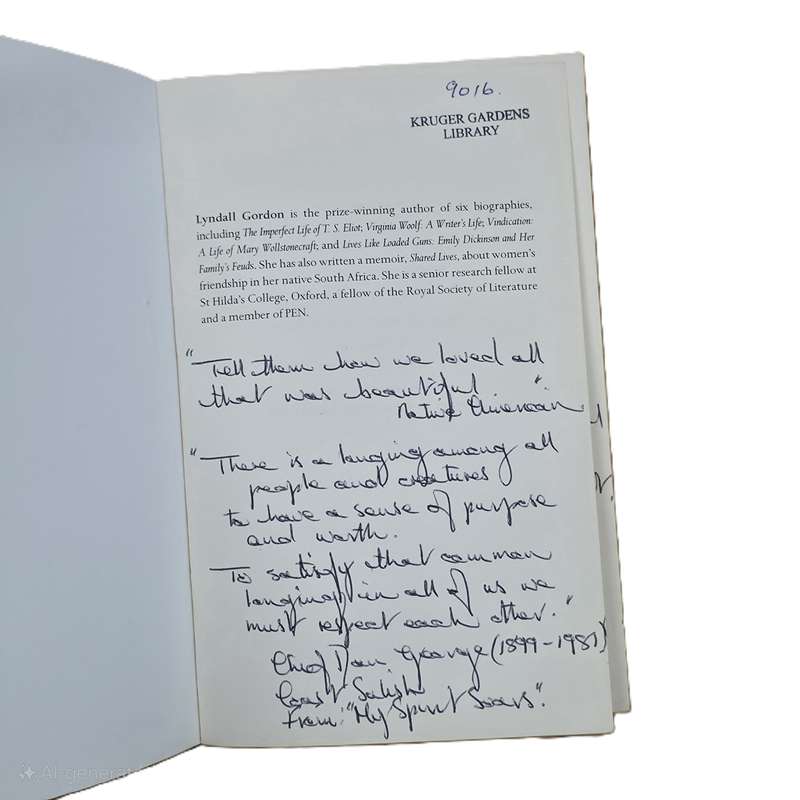 9016.
KRUGER GARDENS
LIBRARY
Lyndall Gordon is the prize-winning author of six biographies,
including The Imperfect Life of T. S. Eliot; Virginia Woolf: A Writer's Life; Vindication:
A Life of Mary Wollstonecraft; and Lives Like Loaded Guns: Emily Dickinson and Her
Family's Feuds. She has also written a memoir, Shared Lives, about women's
friendship in her native South Africa. She is a senior research fellow at
St Hilda's College, Oxford, a fellow of the Royal Society of Literature
and a member of PEN.
"Tell them how we loved all
that was beautiful."
Native American
"There is a longing among all
people and creatures
to have a sense of purpose
and worth.
To satisfy that common
longing in all of us we
must respect each other."
Chief Dan George (1899-1981)
Coast Salish
From: "My Spirit Soars".
AI-generat